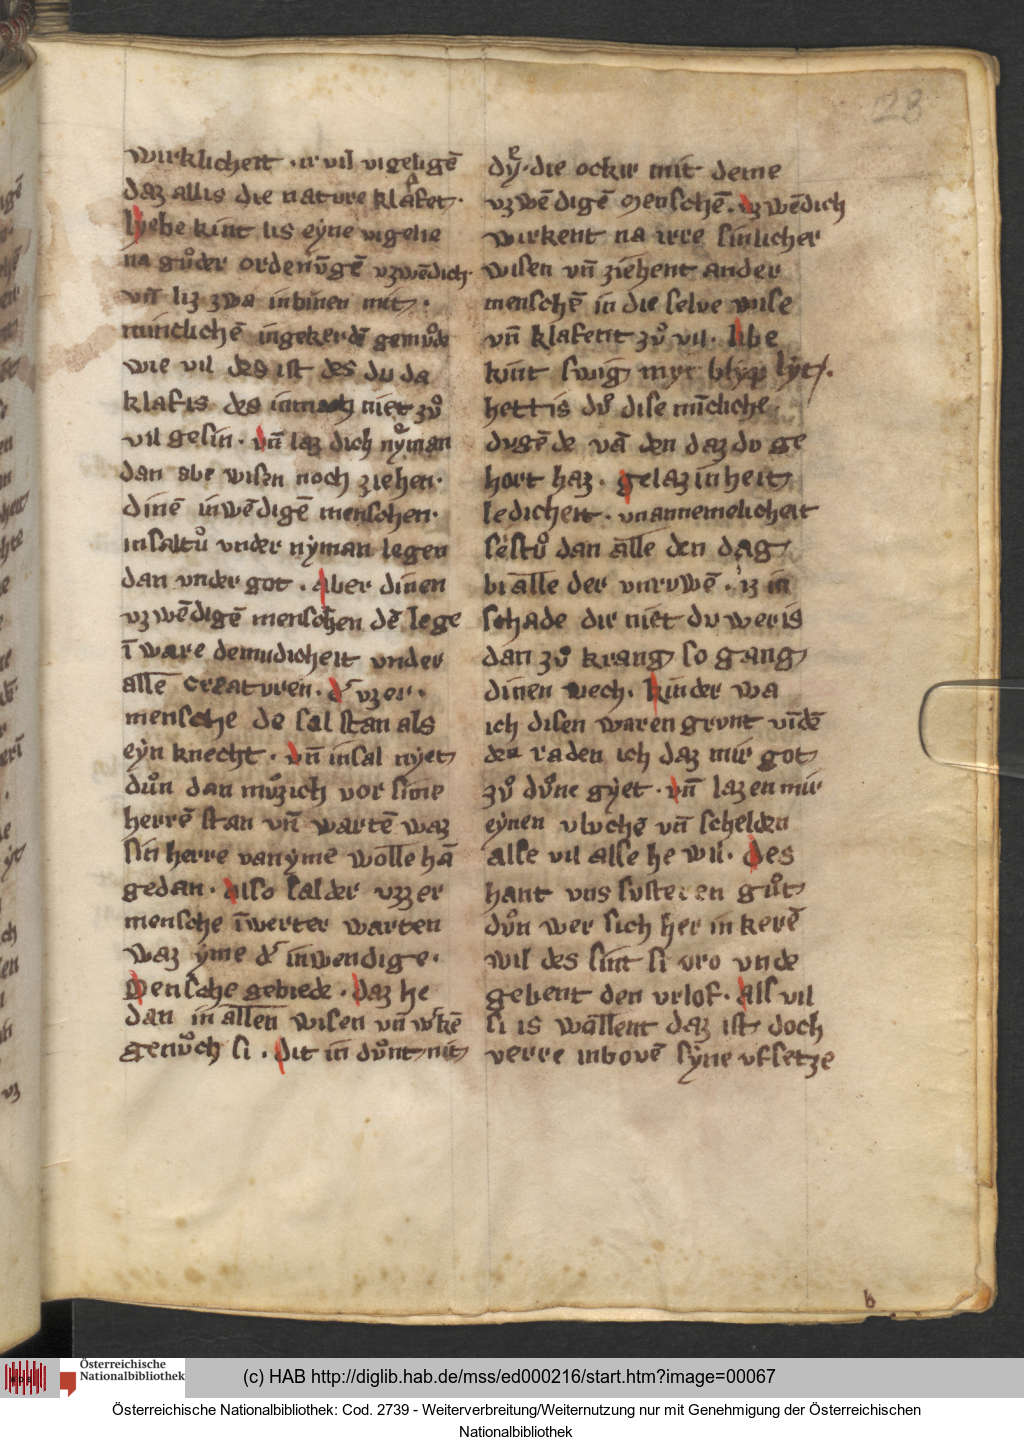 28
wurklicheit · ir vil vigeligē
daz allis die nature klafet·
lyebe kint lis eẏne vigelie
na gůder ordenūgē vzwēdich·
vn̄ liz zwa inbinen mit ·
minclichē ingekerdē gemůde
wie vil des ist des du da
klafis des inmach niet zů
vil gesin · vn̄ laz dich nẏman
dan abe wisen noch ziehen·
dinē inwēdigē menschen·
insaltů vnder nẏman legen
dan vnder got · Aber dinen
vzwēdigē menschen dē lege
ī ware demudicheit vnder
alle creaturen · dʼ vzer ·
mensche de sal stan als
eẏn knecht · vn̄ insal nẏet
důn dan můzich vor sime
herrē stan vn̄ wartē waz
sin herre vanẏme wolle hā
gedan · also sal der vzzer
mensche īwerter warten
waz ẏme dʼ inwendige·
Mensche gebiede · daz he
dan in allen wisen vn̄ wʼkē
genůch si · dit in důnt nit
dẏ · die ockir mit deme
vzwēdigē Menschē · vzwēdich
wirkent na irre sinlicher
wisen vn̄ ziehent ander
menschē in die selve wise
vn̄ klafent zů vil · libe
kint swig myt blyꝑ lẏt ·
hettis dů dise mīcliche
dugēde vā den daz du ge
hort haz · gelazinheit
ledicheit · vnannemelicheit
sestů dan alle den dag
bi alle der vnruwē · iz in
schade dir niet du weris
dan zů krang so gang
dinen wech · kinder wa
ich disen waren grunt vīdē
den raden ich daz mir got
zů důne gẏet · vn̄ lazen mir
eẏnen vluchē vn̄ schelden
alse vil alse he wil · des
hant vns susteren gůt
důn wer sich her in kerē
wil des sint si vro vnde
gebent den vrlof · als vil
si is wallent daz ist doch
verre inbovē sẏne vfsetze
b
Österreichische
Nationalbibliothek
(c) HAB http://diglib.hab.de/mss/ed000216/start.htm?image=00067
Österreichische Nationalbibliothek: Cod. 2739 - Weiterverbreitung/Weiternutzung nur mit Genehmigung der Österreichischen
Nationalbibliothek